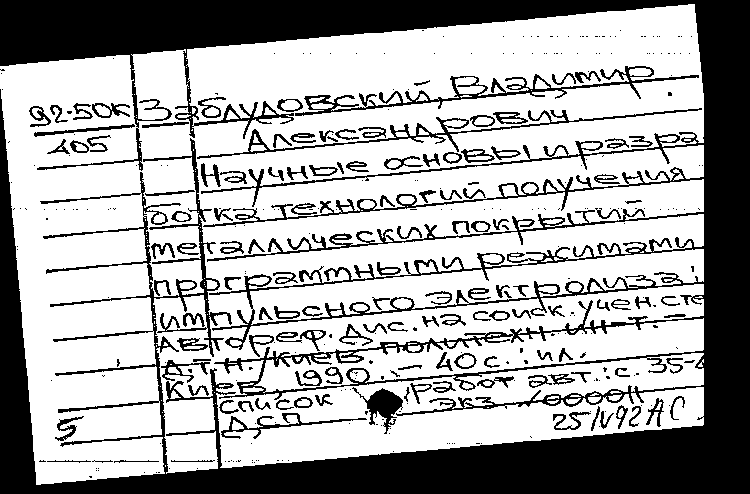 92-50К Заблудовский, Владимир
405 Александрович.
Научные основы и разра-
ботка технологий получения
металлических покрытий
программными режимами
импульсного электролиза:
Автореф. дис. на соиск. учен. сте
д.т.н. / Киев. политехн. ин-т. –
Киев, 1990. – 40 с. : ил.
список работ авт.: с. 35-
5 Д,СП экз. 000011
25/IV92 АС